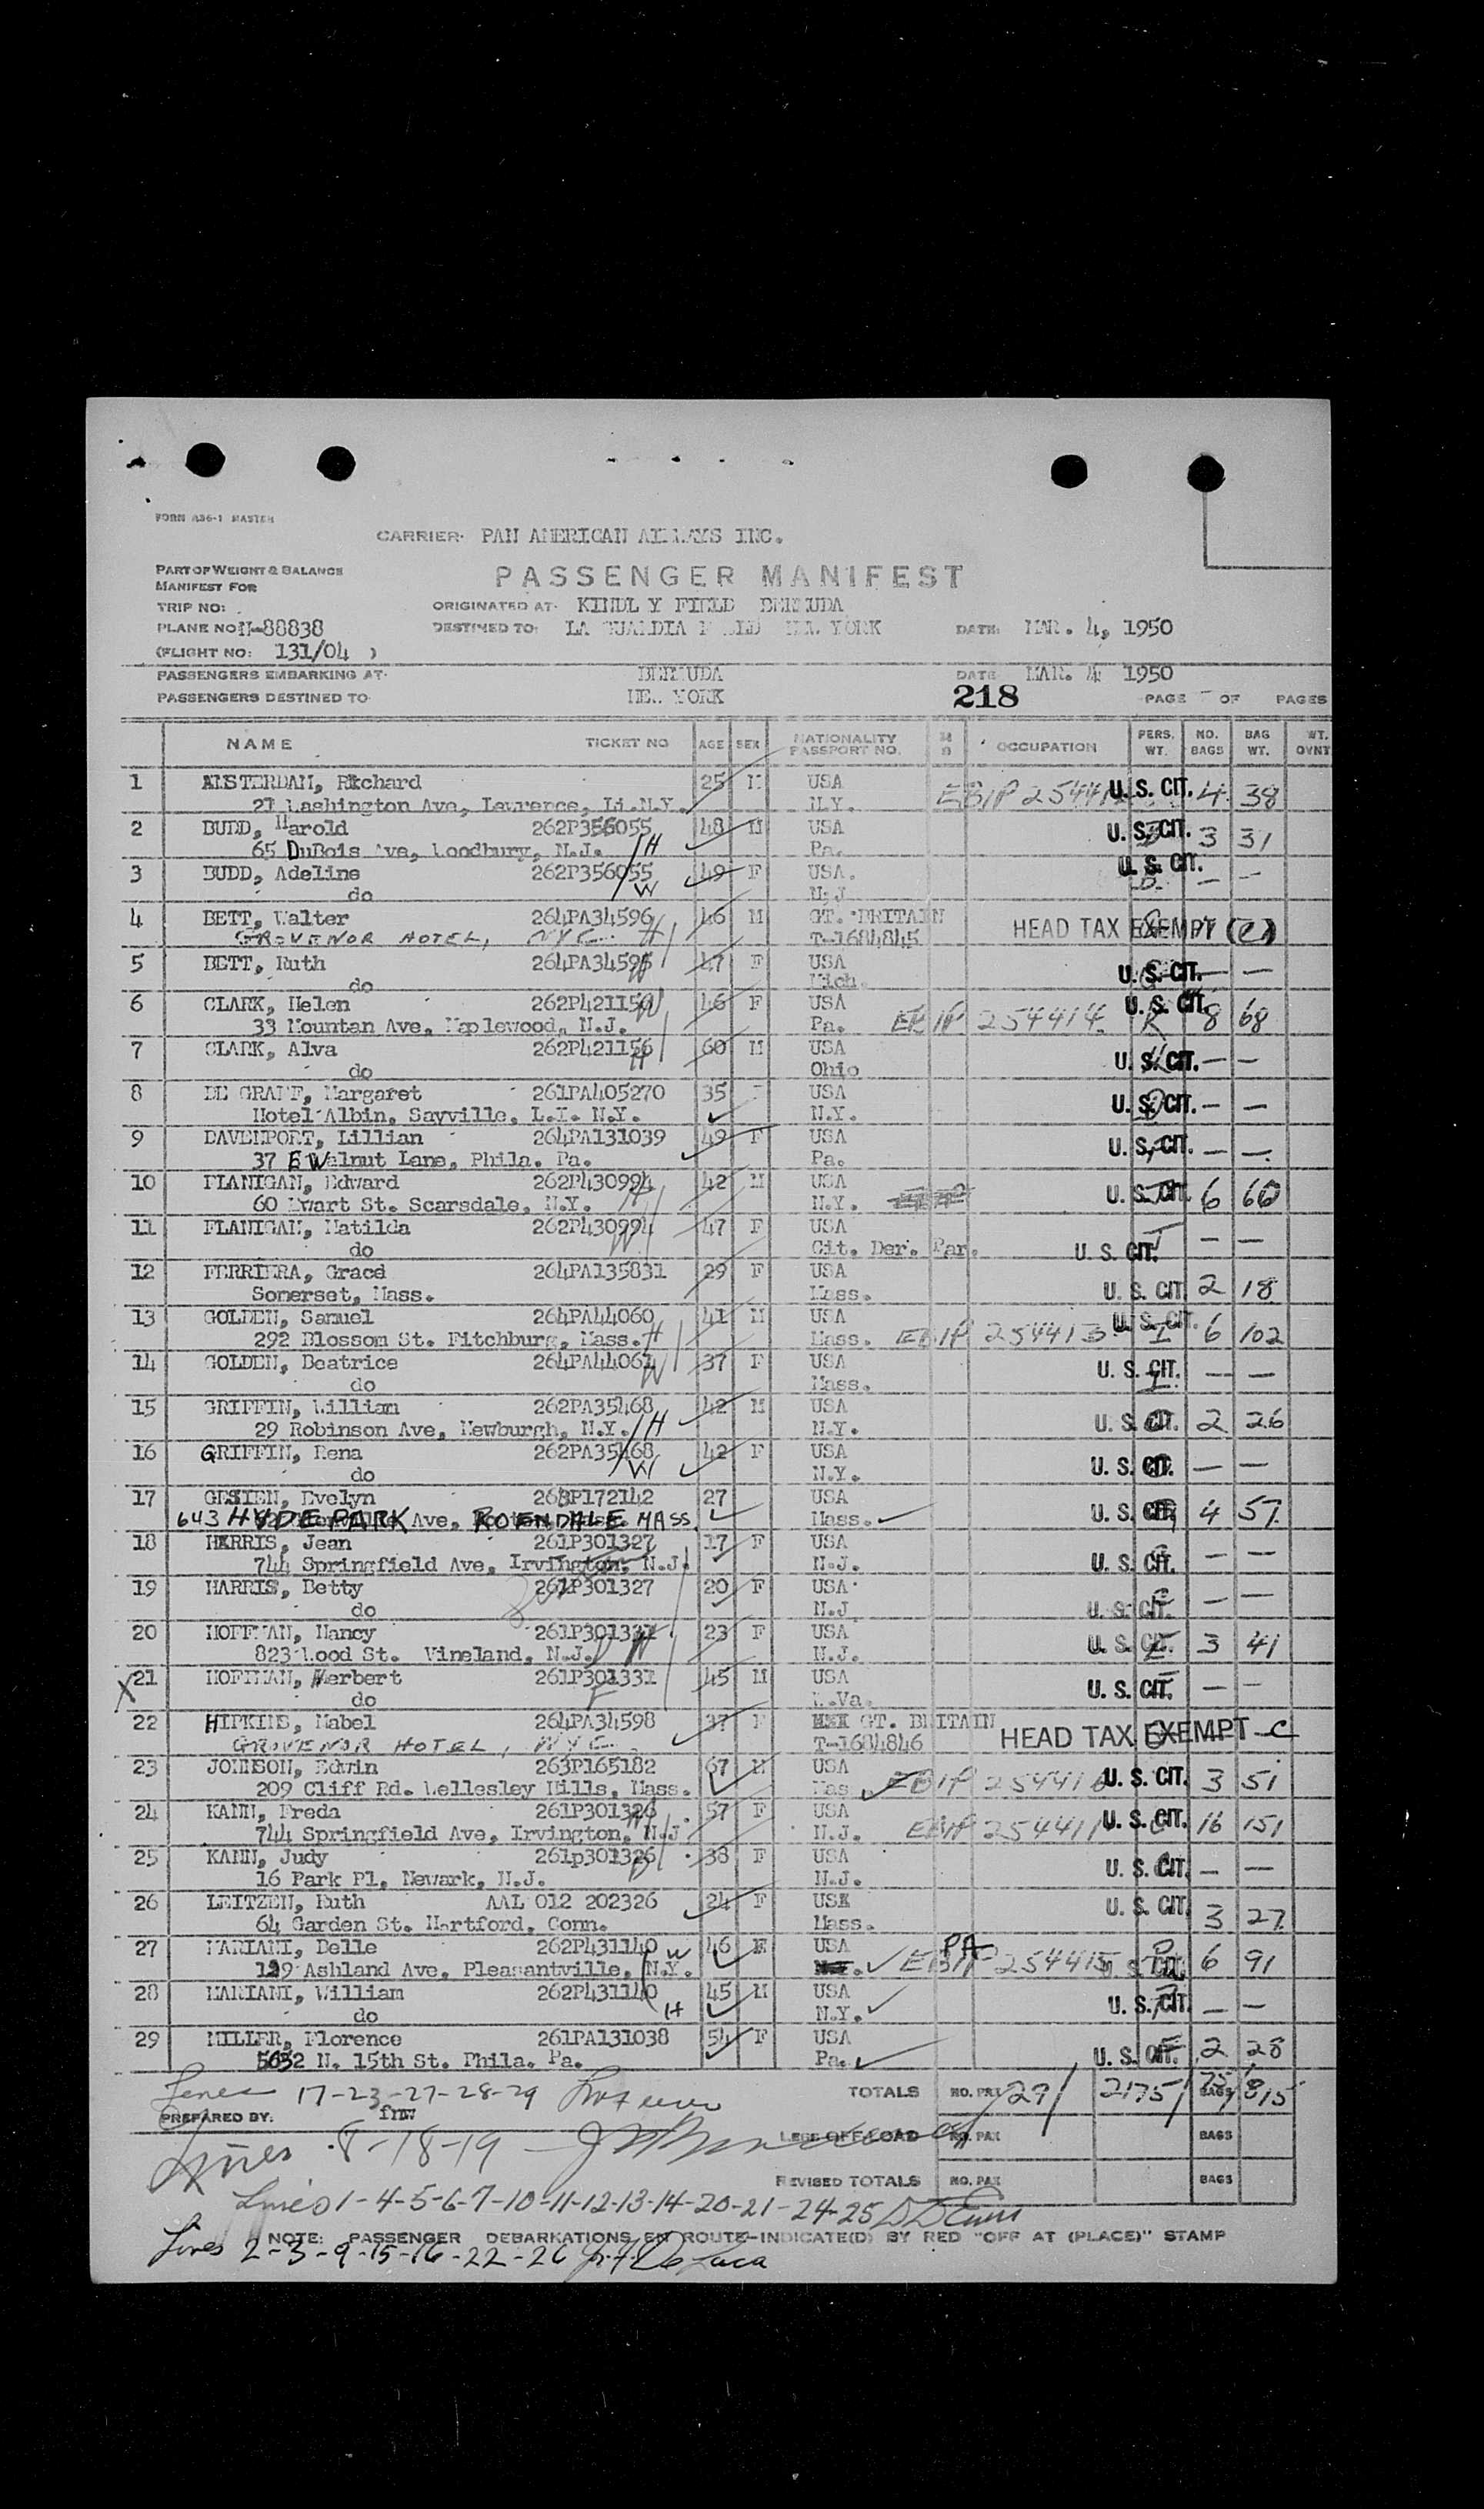 FORM A36-1 MASTER
CARRIER: PAN AMERICAN AIRWAYS INC.
PART OF WEIGHT & BALANCE
MANIFEST FOR
PASSENGER MANIFEST
TRIP NO:
ORIGINATED AT: KINDL Y FIELD BERMUDA
PLANE NO: N-88838
DESTINED TO: LA GUARDIA FIELD NEW YORK DATE: MAR. 4, 1950
(FLIGHT NO: 131/04 )
PASSENGERS EMBARKING AT: BERMUDA DATE MAR. 4 1950
PASSENGERS DESTINED TO: NEW YORK 218 PAGE OF PAGES
NAME TICKET NO AGE SEX NATIONALITY PASSPORT NO. M S OCCUPATION PERS. WT. NO. BAGS BAG WT. WT. OVNT
1 AMSTERDAM, Richard 25 M USA U. S. CIT. 4 38
21 Washington Ave, Lawrence, L.I.N.Y. N.Y.
2 BUDD, Harold 262P356055 48 M USA U. S. CIT. 3 31
65 DuBois Ave, Woodbury, N.J. H Pa.
3 BUDD, Adeline 262P356055 49 F USA. U. S. CIT. — —
do W N.J
4 BETT, Walter 264PA34596 46 M GT. BRITAIN HEAD TAX EXEMPT (C)
GROVENOR HOTEL, NYC H T-1684845
5 BETT, Ruth 264PA34595 47 F USA U. S. CIT. — —
do W Mich.
6 CLARK, Helen 262P421156 W 46 F USA U. S. CIT. 8 68
33 Mountan Ave, Maplewood, N.J. Pa. EBIP 254414
7 CLARK, Alva 262P421156 60 M USA U. S. CIT. — —
do H Ohio
8 DE GRAFF, Margaret 261PA405270 35 USA U. S. CIT. — —
Hotel Albin, Sayville, L.I. N.Y. N.Y.
9 DAVENPORT, Lillian 264PA131039 49 F USA U. S. CIT. — —
37 E Walnut Lane, Phila. Pa. Pa.
10 FLANIGAN, Edward 262P430994 42 M USA U. S. CIT. 6 60
60 Ewart St. Scarsdale, N.Y. H N.Y.
11 FLANIGAN, Matilda 262P430994 47 F USA — —
do W Cit. Der. Par. U. S. CIT.
12 FERRIERA, Grace 264PA135831 29 F USA
Somerset, Mass. Mass. U. S. CIT. 2 18
13 GOLDEN, Samuel 264PA44060 41 M USA U. S. CIT.
292 Blossom St. Fitchburg, Mass. H Mass. EBIP 254413 6 102
14 GOLDEN, Beatrice 264PA44061 37 F USA U. S. CIT. — —
do W Mass.
15 GRIFFIN, William 262PA35468 42 M USA
29 Robinson Ave, Newburgh, N.Y. H N.Y. U. S. CIT. 2 26
16 GRIFFIN, Rena 262PA35468 42 F USA
do W N.Y. U. S. CIT. — —
17 GESIEN, Evelyn 263P172142 27 USA
643 HYDE PARK Ave, ROENDALE MASS. Mass. U. S. CIT. 4 57
18 HARRIS, Jean 261P301327 17 F USA
744 Springfield Ave, Irvington, N.J. N.J. U. S. CIT. — —
19 HARRIS, Betty 261P301327 20 F USA
do N.J U. S. CIT. — —
20 HOFFMAN, Nancy 261P301331 23 F USA
823 Wood St. Vineland, N.J. N.J. U. S. CIT. 3 41
X 21 HOFFMAN, Herbert 261P301331 45 M USA
do F W.Va. U. S. CIT. — —
22 HIPKINS, Mabel 264PA34598 37 F GT. BRITAIN
GROVENOR HOTEL, NYC T-1684846 HEAD TAX EXEMPT C
23 JOHNSON, Edwin 263P165182 67 M USA
209 Cliff Rd. Wellesley Hills, Mass. Mas EBIP 254416 U. S. CIT. 3 51
24 KANN, Freda 261P301326 57 F USA
744 Springfield Ave, Irvington, N.J N.J. EBIP 254411 U. S. CIT. 16 151
25 KANN, Judy 261p301326 38 F USA
16 Park Pl. Newark, N.J. N.J. U. S. CIT. — —
26 LEITZEN, Ruth AAL 012 202326 24 F USA U. S. CIT.
64 Garden St. Hartford, Conn. Mass. 3 27
27 MARIANI, Belle 262P431140 W 46 F USA PA
129 Ashland Ave, Pleasantville, N.Y. EBIP 254415 U. S. CIT. 6 91
28 MARIANI, William 262P431140 45 M USA
do H N.Y. U. S. CIT. — —
29 MILLER, Florence 261PA131038 54 F USA
5652 N. 15th St. Phila. Pa. Pa. U. S. CIT. 2 28
Lines 17-23-27-28-29 TOTALS NO. PAX 29 2175 75 BAGS 815
PREPARED BY: fnw
Lines 8-18-19 LESS OFF-LOAD NO. PAX BAGS
REVISED TOTALS NO. PAX BAGS
Lines 1-4-5-6-7-10-11-12-13-14-20-21-24-25
NOTE: PASSENGER DEBARKATIONS EN ROUTE-INDICATE(D) BY RED "OFF AT (PLACE)" STAMP
Lines 2-3-9-15-16-22-26